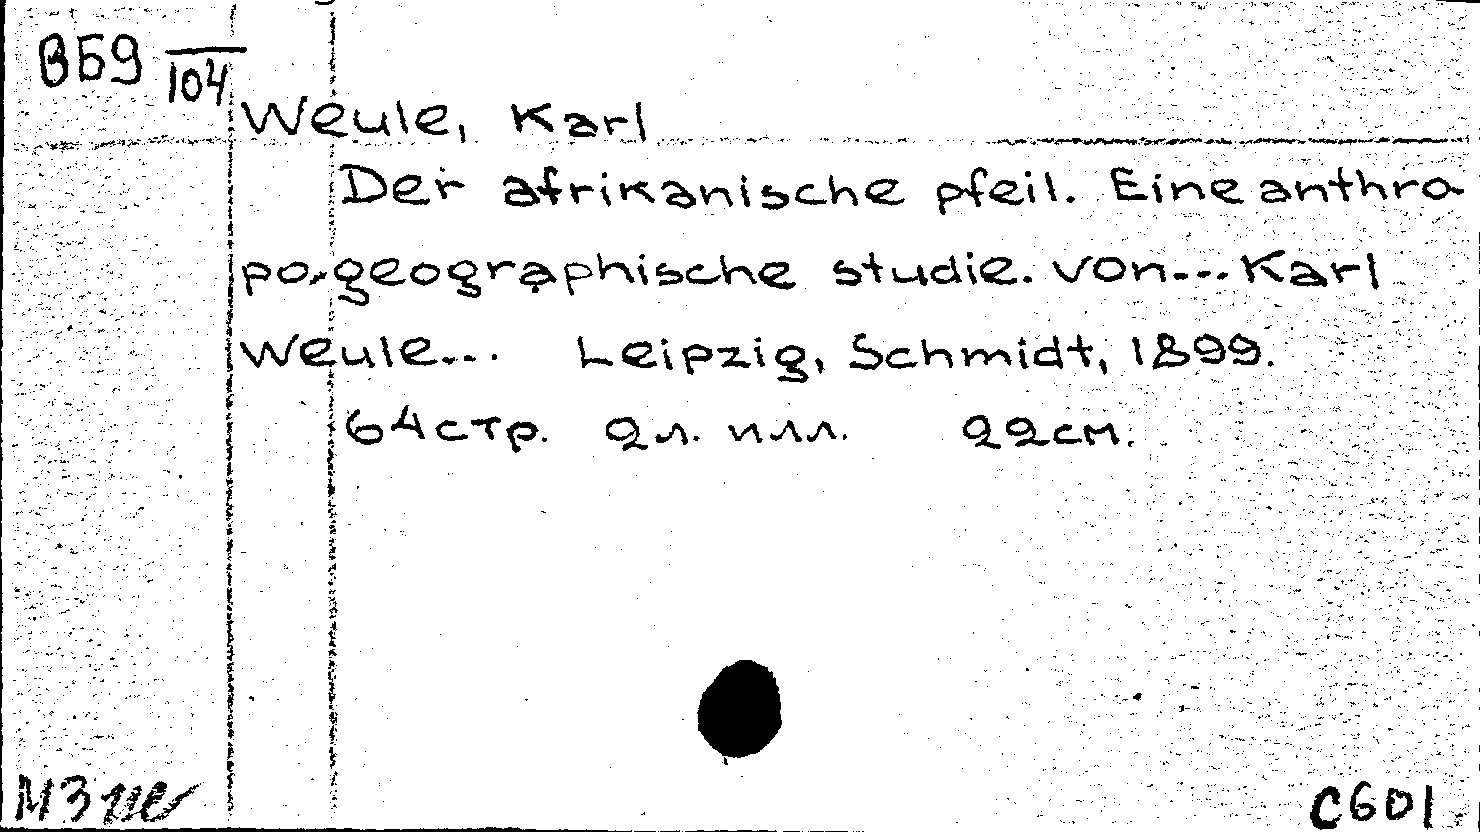 ВБ9 104
Weule, Karl
Der afrikanische pfeil. Eine anthra
po-geographische studie. von... Karl
Weule... Leipzig, Schmidt, 1899.
64стр. 2л. илл. 22см.
МЗ
С601